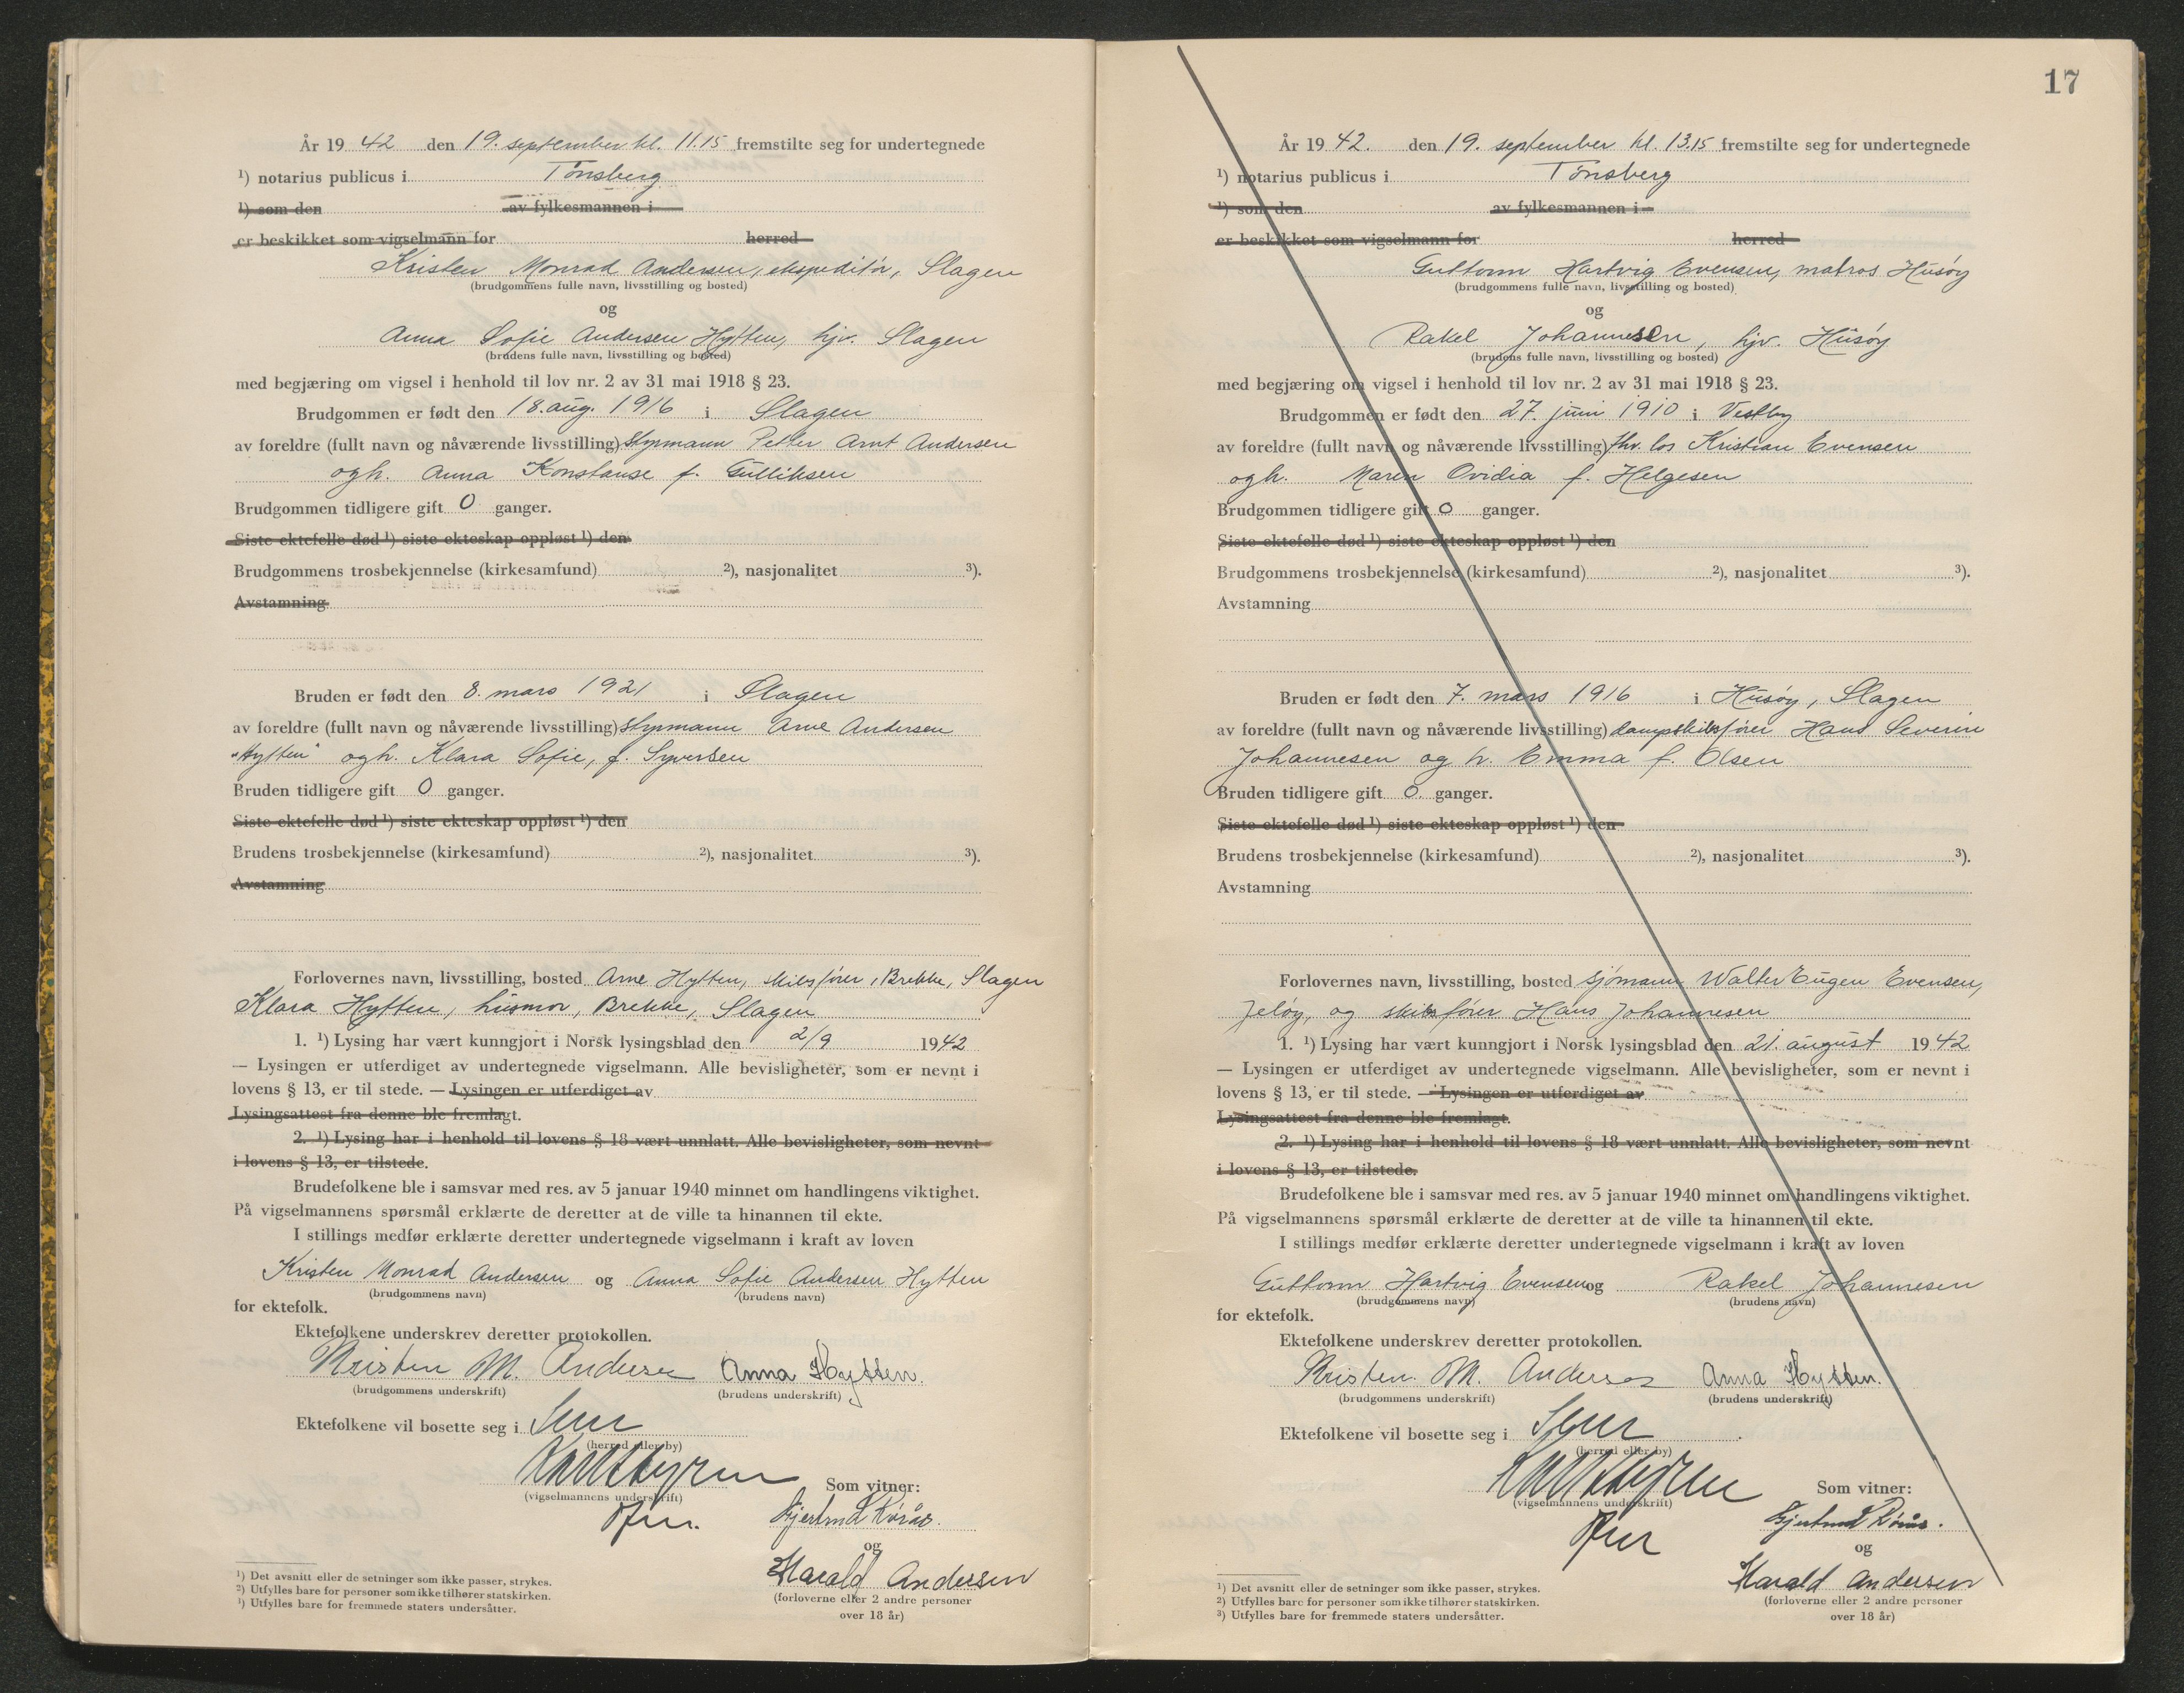 År 19 42 den 19. september kl. 11.15 fremstilte seg for undertegnede
¹) notarius publicus i Tönsberg
¹) som den av fylkesmannen i
er beskikket som vigselmann for herred
Kristen Monrad Andersen, ekspeditör, Slagen
(brudgommens fulle navn, livsstilling og bosted)
og
Anna Sofie Andersen Hytten, hjv. Slagen
(brudens fulle navn, livsstilling og bosted)
med begjæring om vigsel i henhold til lov nr. 2 av 31 mai 1918 § 23.
Brudgommen er født den 18. aug. 1916 i Slagen
av foreldre (fullt navn og nåværende livsstilling) Styrmann Petter Arnt Andersen
og h. Anna Konstanse f. Gulliksen
Brudgommen tidligere gift 0 ganger.
Siste ektefelle død ¹) siste ekteskap oppløst ¹) den
Brudgommens trosbekjennelse (kirkesamfund) ²), nasjonalitet ³).
Avstamning
Bruden er født den 8. mars 1921 i Slagen
av foreldre (fullt navn og nåværende livsstilling) Styrmann Arne Andersen
"Hytten" og h. Klara Sofie, f. Syversen
Bruden tidligere gift 0 ganger.
Siste ektefelle død ¹) siste ekteskap oppløst ¹) den
Brudens trosbekjennelse (kirkesamfund) ²), nasjonalitet ³).
Avstamning
Forlovernes navn, livsstilling, bosted Arne Hytten, skibsfører, Brekke, Slagen
Klara Hytten, husmor, Brekke, Slagen
1. ¹) Lysing har vært kunngjort i Norsk lysingsblad den 2/9 1942
— Lysingen er utferdiget av undertegnede vigselmann. Alle bevisligheter, som er nevnt i
lovens § 13, er til stede. — Lysingen er utferdiget av
Lysingsattest fra denne ble fremlagt.
2. ¹) Lysing har i henhold til lovens § 18 vært unnlatt. Alle bevisligheter, som nevnt
i lovens § 13, er tilstede.
Brudefolkene ble i samsvar med res. av 5 januar 1940 minnet om handlingens viktighet.
På vigselmannens spørsmål erklærte de deretter at de ville ta hinannen til ekte.
I stillings medfør erklærte deretter undertegnede vigselmann i kraft av loven
Kristen Monrad Andersen og Anna Sofie Andersen Hytten
(brudgommens navn) (brudens navn)
for ektefolk.
Ektefolkene underskrev deretter protokollen.
Kristen M. Andersen Anna Hytten.
(brudgommens underskrift) (brudens underskrift)
Ektefolkene vil bosette seg i Sem
(herred eller by)
(vigselmannens underskrift)
Som vitner:
Gjertrud Rörås.
og
Harald Andersen
(forloverne eller 2 andre personer
over 18 år)
¹) Det avsnitt eller de setninger som ikke passer, strykes.
²) Utfylles bare for personer som ikke tilhører statskirken.
¹) Utfylles bare for fremmede staters undersåtter.
17
År 19 42. den 19. september kl. 13.15 fremstilte seg for undertegnede
¹) notarius publicus i Tönsberg
¹) som den av fylkesmannen i
er beskikket som vigselmann for herred
Guttorm Hartvig Evensen, matros Husöy
(brudgommens fulle navn, livsstilling og bosted)
og
Rakel Johannesen, hjv. Husöy
(brudens fulle navn, livsstilling og bosted)
med begjæring om vigsel i henhold til lov nr. 2 av 31 mai 1918 § 23.
Brudgommen er født den 27. juni 1910 i Vestby
av foreldre (fullt navn og nåværende livsstilling) fhv. los Kristian Evensen
og h. Maren Ovidia f. Helgesen
Brudgommen tidligere gift 0 ganger.
Siste ektefelle død ¹) siste ekteskap oppløst ¹) den
Brudgommens trosbekjennelse (kirkesamfund) ²), nasjonalitet ³).
Avstamning
Bruden er født den 7. mars 1916 i Husöy, Slagen
av foreldre (fullt navn og nåværende livsstilling) dampskibsfører Hans Severin
Johannesen og h. Emma f. Olsen
Bruden tidligere gift 0. ganger.
Siste ektefelle død ¹) siste ekteskap oppløst ¹) den
Brudens trosbekjennelse (kirkesamfund) ²), nasjonalitet ³).
Avstamning
Forlovernes navn, livsstilling, bosted sjömann Walter Eugen Evensen,
Jelöy, og skibsfører Hans Johannesen
1. ¹) Lysing har vært kunngjort i Norsk lysingsblad den 21. august 19 42
— Lysingen er utferdiget av undertegnede vigselmann. Alle bevisligheter, som er nevnt i
lovens § 13, er til stede. — Lysingen er utferdiget av
Lysingsattest fra denne ble fremlagt.
2. ¹) Lysing har i henhold til lovens § 18 vært unnlatt. Alle bevisligheter, som nevnt
i lovens § 13, er tilstede.
Brudefolkene ble i samsvar med res. av 5 januar 1940 minnet om handlingens viktighet.
På vigselmannens spørsmål erklærte de deretter at de ville ta hinannen til ekte.
I stillings medfør erklærte deretter undertegnede vigselmann i kraft av loven
Guttorm Hartvig Evensen og Rakel Johannesen
(brudgommens navn) (brudens navn)
for ektefolk.
Ektefolkene underskrev deretter protokollen.
Kristen M. Andersen Anna Hytten.
(brudgommens underskrift) (brudens underskrift)
Ektefolkene vil bosette seg i Sem
(herred eller by)
(vigselmannens underskrift)
Som vitner:
Gjertrud Rörås.
og
Harald Andersen
(forloverne eller 2 andre personer
over 18 år)
¹) Det avsnitt eller de setninger som ikke passer, strykes.
²) Utfylles bare for personer som ikke tilhører statskirken.
³) Utfylles bare for fremmede staters undersåtter.